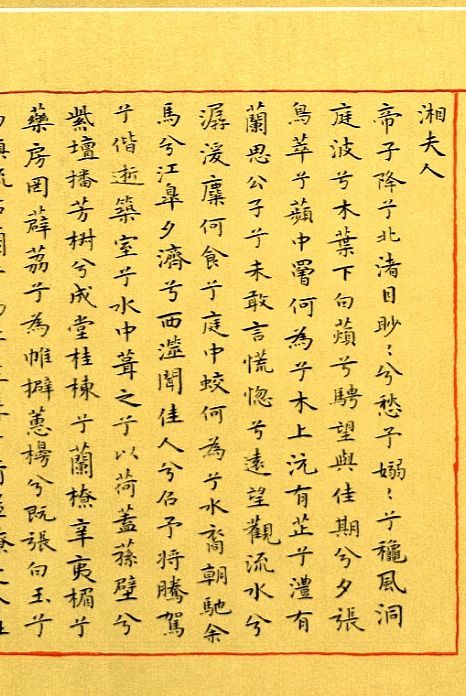 湘夫人
帝子降兮北渚目眇〻兮愁予嫋〻兮穐風洞
庭波兮木葉下白薠兮騁望與佳期兮夕張
鳥萃兮蘋中罾何為兮木上沅有芷兮澧有
蘭思公子兮未敢言慌惚兮遠望觀流水兮
潺湲麋何食兮庭中蛟何為兮水裔朝馳余
馬兮江皋夕濟兮西澨聞佳人兮召予将騰駕
兮偕逝築室兮水中葺之兮以荷蓋蓀壁兮
紫壇播芳椒兮成堂桂棟兮蘭橑辛夷楣兮
藥房罔薜荔兮為帷擗蕙櫋兮既張白玉兮